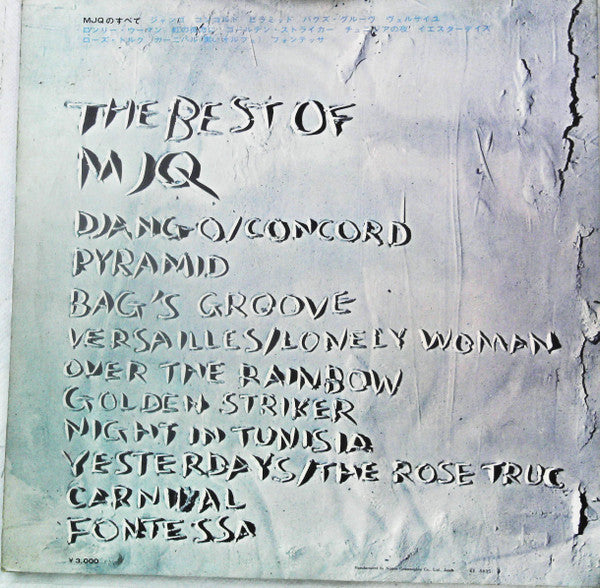 MJQのすべて ジャンゴ コンコルド ピラミッド バグズ・グルーヴ ヴェルサイユ
ロンリー・ウーマン 虹の彼方に ゴールデン・ストライカー チュニジアの夜 イエスターデイズ
ローズ・トルク カーニバル(黒いオルフェ) フォンテッサ
THE BEST OF
MJQ
DJANGO/CONCORD
PYRAMID
BAG'S GROOVE
VERSAILLES/LONELY WOMAN
OVER THE RAINBOW
GOLDEN STRIKER
NIGHT IN TUNISIA
YESTERDAYS/THE ROSE TRUC
CARNIVAL
FONTESSA
¥3,000
Manufactured by Nippon Gramophone Co., Ltd., Japan